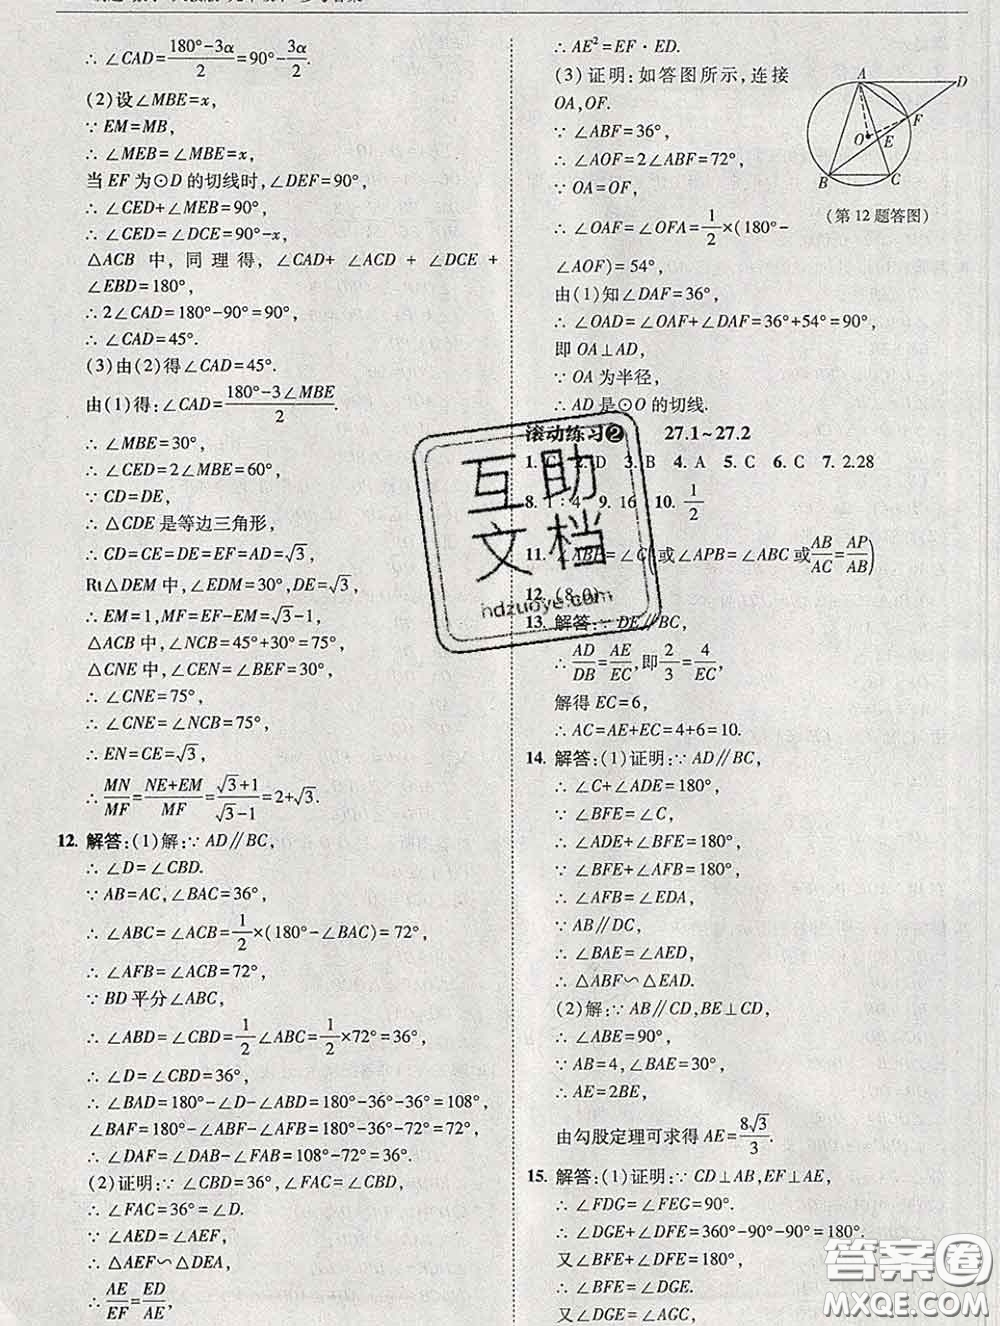 ∴ ∠CAD=(180°-3α)/2=90°-3α/2.
(2)设∠MBE=x,
∵ EM=MB,
∴ ∠MEB=∠MBE=x,
当 EF 为⊙D 的切线时,∠DEF=90°,
∴ ∠CED+∠MEB=90°,
∴ ∠CED=∠DCE=90°-x,
△ACB 中, 同 理 得, ∠CAD+ ∠ACD + ∠DCE +
∠EBD=180°,
∴ 2∠CAD=180°-90°=90°,
∴ ∠CAD=45°.
(3)由(2)得∠CAD=45°.
由(1)得:∠CAD=(180°-3∠MBE)/2.
∴ ∠MBE=30°,
∴ ∠CED=2∠MBE=60°,
∵ CD=DE,
∴ △CDE 是等边三角形,
∴ CD=CE=DE=EF=AD=√3,
Rt△DEM 中,∠EDM=30°,DE=√3,
∴ EM=1,MF=EF-EM=√3-1,
△ACB 中,∠NCB=45°+30°=75°,
△CNE 中,∠CEN=∠BEF=30°,
∴ ∠CNE=75°,
∴ ∠CNE=∠NCB=75°,
∴ EN=CE=√3,
∴ MN/MF=(NE+EM)/MF=(√3+1)/(√3-1)=2+√3.
12. 解答:(1)解:∵ AD∥BC,
∴ ∠D=∠CBD.
∵ AB=AC,∠BAC=36°,
∴ ∠ABC=∠ACB=1/2×(180°-∠BAC)=72°,
∴ ∠AFB=∠ACB=72°,
∵ BD 平分∠ABC,
∴ ∠ABD=∠CBD=1/2∠ABC=1/2×72°=36°,
∴ ∠D=∠CBD=36°,
∴ ∠BAD=180°-∠D-∠ABD=180°-36°-36°=108°,
∠BAF=180°-∠ABF-∠AFB=180°-36°-72°=72°,
∴ ∠DAF=∠DAB-∠FAB=108°-72°=36°.
(2)证明:∵ ∠CBD=36°,∠FAC=∠CBD,
∴ ∠FAC=36°=∠D.
∵ ∠AED=∠AEF,
∴ △AEF∽△DEA,
∴ AE/EF=ED/AE,
∴ AE²=EF · ED.
(3)证明:如答图所示,连接
OA,OF.
∵ ∠ABF=36°,
∴ ∠AOF=2∠ABF=72°,
∵ OA=OF,
∴ ∠OAF=∠OFA=1/2×(180°-
∠AOF)=54°,
由(1)知∠DAF=36°,
∴ ∠OAD=∠OAF+∠DAF=36°+54°=90°,
即 OA⊥AD,
∵ OA 为半径,
∴ AD 是⊙O 的切线.
A
D
F
O
E
B
C
(第 12 题答图)
滚动练习❷ 27.1~27.2
1. C 2. D 3. B 4. A 5. C 6. C 7. 2.28
8. 1 : 4 9. 16 10. 1/2
11. ∠ABP=∠C(或∠APB=∠ABC 或AB/AC=AP/AB)
12. (8,0)
13. 解答:∵ DE∥BC,
∴ AD/DB=AE/EC,即2/3=4/EC,
解得 EC=6,
∴ AC=AE+EC=4+6=10.
14. 解答:(1)证明:∵ AD∥BC,
∴ ∠C+∠ADE=180°,
∵ ∠BFE=∠C,
∴ ∠ADE+∠BFE=180°,
∵ ∠BFE+∠AFB=180°,
∴ ∠AFB=∠EDA,
∵ AB∥DC,
∴ ∠BAE=∠AED,
∴ △ABF∽△EAD.
(2)解:∵ AB∥CD,BE⊥CD,
∴ ∠ABE=90°,
∵ AB=4,∠BAE=30°,
∴ AE=2BE,
由勾股定理可求得 AE=8√3/3.
15. 解答:(1)证明:∵ CD⊥AB,EF⊥AE,
∴ ∠FDG=∠FEG=90°.
∴ ∠DGE+∠DFE=360°-90°-90°=180°.
又∠BFE+∠DFE=180°,
∴ ∠BFE=∠DGE.
又∠DGE=∠AGC,
互助
文档
hdzuoye.com
答案圈
MXQE.COM